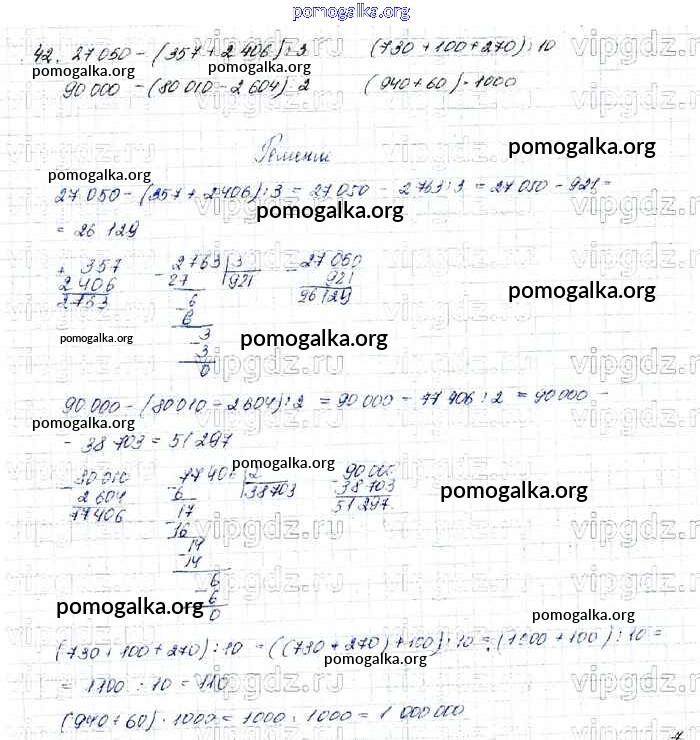 pomogalka.org
42. 27 050 - (357 + 2 406) : 3 (730 + 100 + 270) : 10
pomogalka.org pomogalka.org vipgdz.ru
90 000 - (80 010 - 2 604) : 2 (940 + 60) · 1000
Решение
pomogalka.org
pomogalka.org
27 050 - (357 + 2 406) : 3 = 27 050 - 2 763 : 3 = 27 050 - 921 =
pomogalka.org
= 26 129
+ 357 - 2763 | 3 - 27 050
2 406 27 921 921
2 763 - 6 26 129
6
- 3
3
0
pomogalka.org
pomogalka.org
pomogalka.org
90 000 - (80 010 - 2 604) : 2 = 90 000 - 77 406 : 2 = 90 000 -
pomogalka.org
- 38 703 = 51 297
pomogalka.org
- 80 010 - 77 406 | 2 - 90 000
2 604 6 38703 38 703
77 406 17 51 297
- 16
14
- 14
6
- 6
0
pomogalka.org
pomogalka.org
pomogalka.org
(730 + 100 + 270) : 10 = ((730 + 270) + 100) : 10 = (1000 + 100) : 10 =
pomogalka.org
= 1100 : 10 = 110
(940 + 60) · 1000 = 1000 · 1000 = 1 000 000